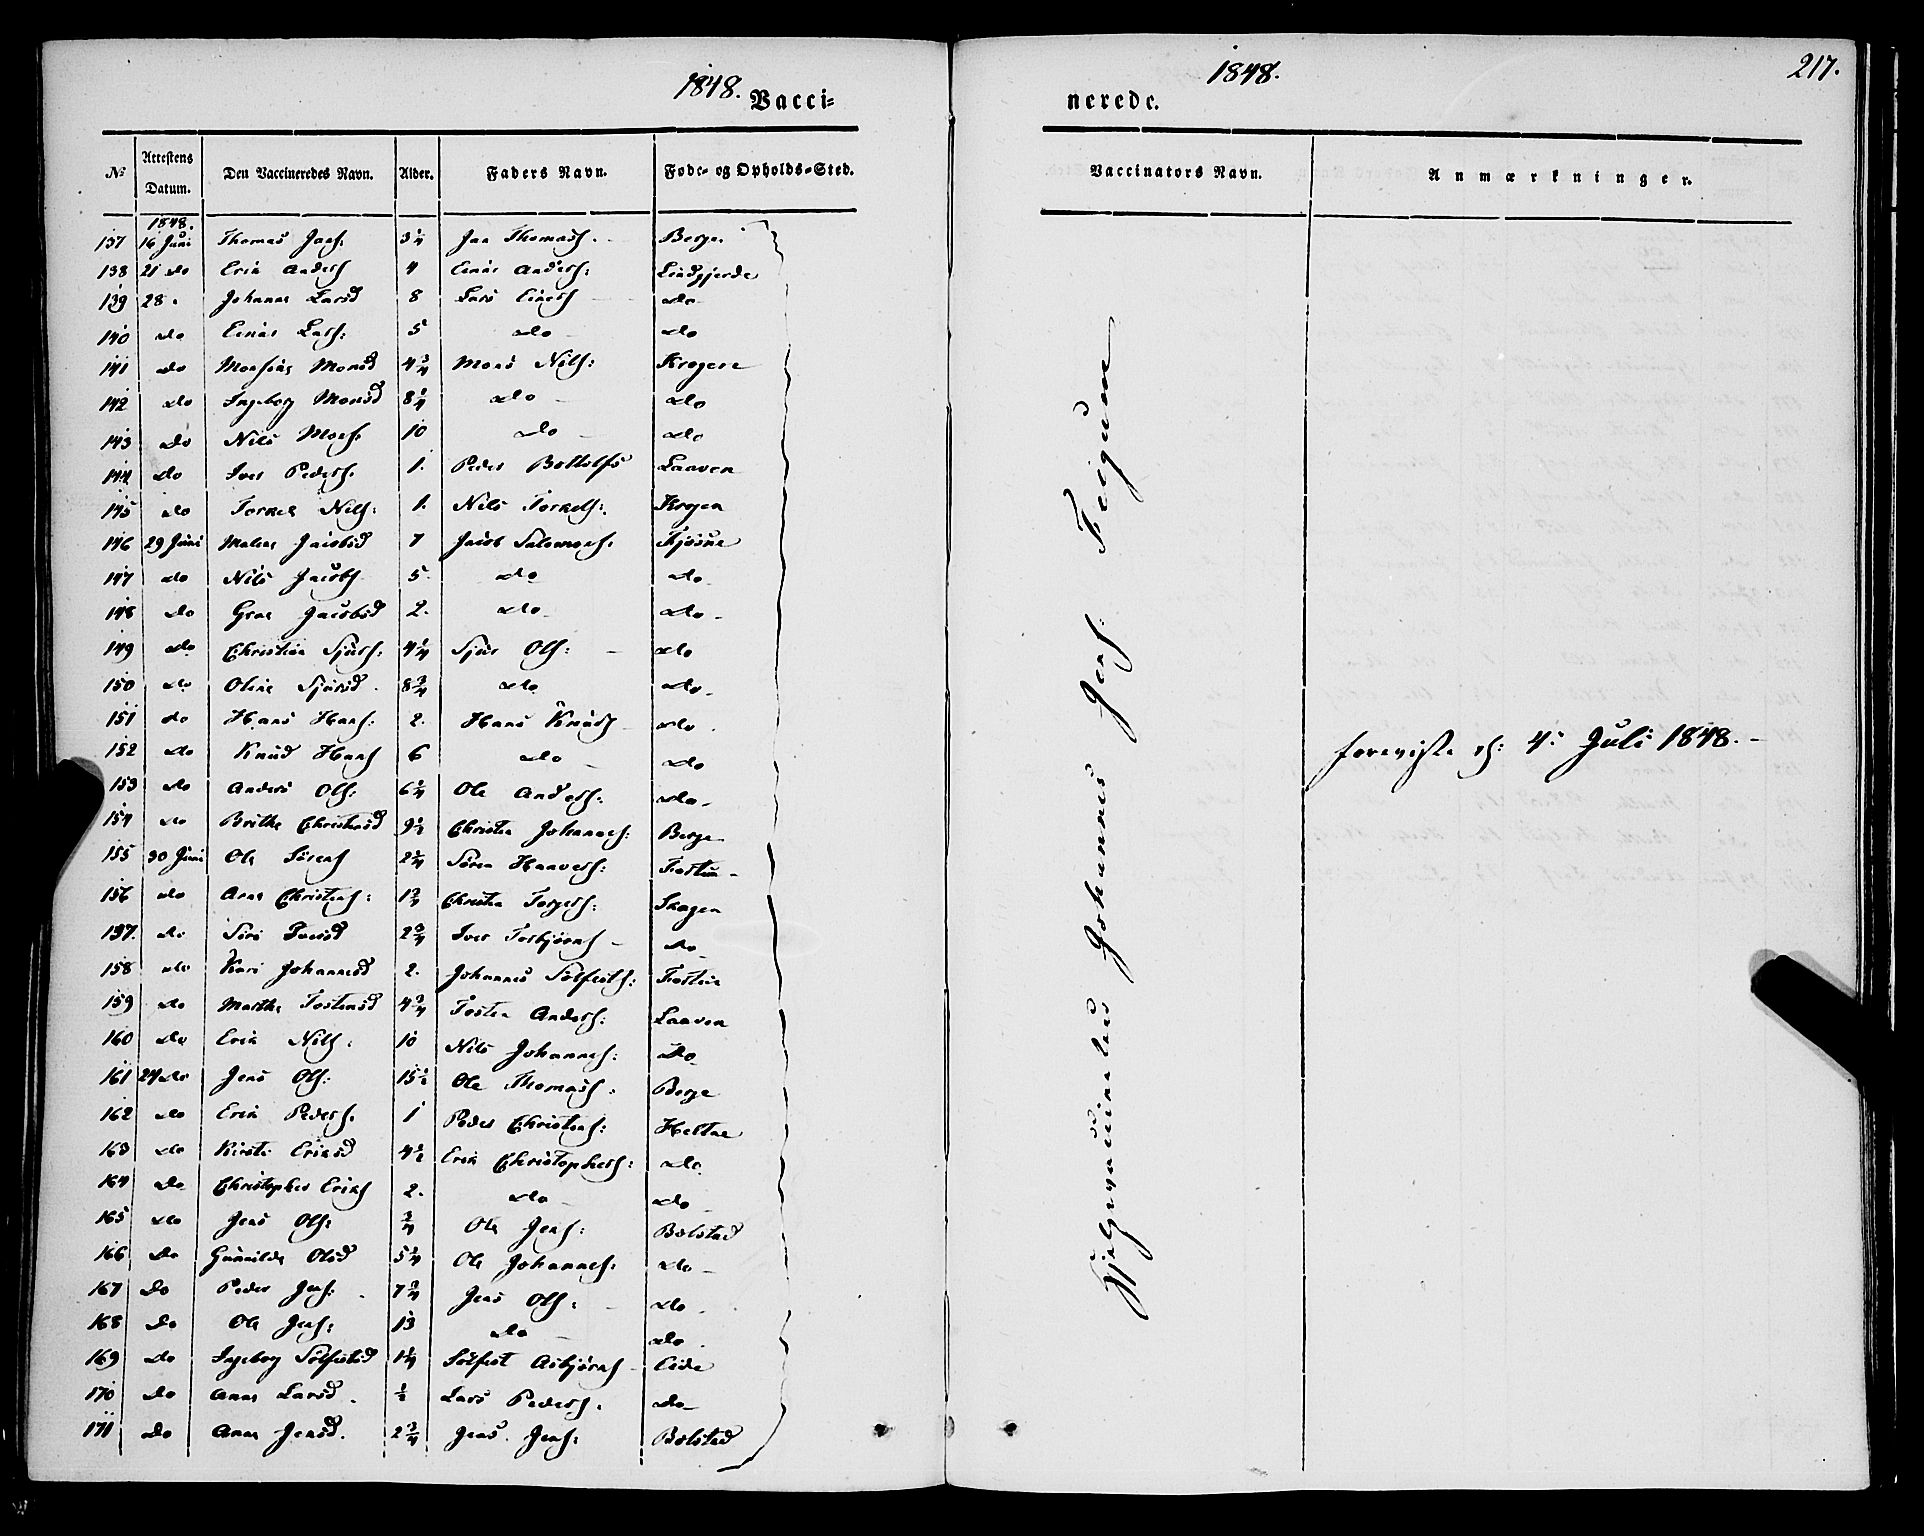 1848. Vacci=
1848. 217.
nerede.
No | Attestens Datum. | Den Vaccineredes Navn. | Alder. | Faders Navn. | Føde- og Opholds-Sted.
Vaccinators Navn. | Anmærkninger.
1848.
137 | 16 Juni | Thomas Jans. | 3 1/4 | Jan Thomass. | Berge.
138 | 21 do | Erik Anders | 4 | Einar Anders: | Lindgjerde
139 | 28. | Johanne Larsd | 8 | Lars Einers | do
140 | do | Einar Lars: | 5 | do | do
141 | do | Monsine Monsd | 4 3/4 | Mons Nils: | Krogene
142 | do | Ingeborg Monsd | 8 1/4 | do | do
143 | do | Nils Mons. | 10 | do | do
144 | do | Iver Peders. | 1. | Peder Bottolfs | Laaven
145 | do | Torkel Nils: | 1. | Nils Torkels: | Krogen
146 | 29 Juni | Malene Jacobsd | 7 | Jacob Salomons. | Kjøsne
147 | do | Nils Jacobs | 5. | do | do
148 | do | Jacobsd | 2. | do | do
149 | do | Christian Sjurs: | 4 1/4 | Sjur Ols: | do
150 | do | Oline Sjursd. | 8 3/4 | do | do
151 | do | Hans Hans: | 2. | Hans Knuds | do.
152 | do | Knud Hans | 6 | do | do
153 | do | Anders Ols: | 6 1/4 | Ole Anders: | do
154 | do | Brithe Christensd | 9 1/2 | Christen Johannes: | Berge
155 | 30 Juni | Ole Sørens | 2 1/4 | Søren Haavers: |
156 | do | Arne Christens: | 1 3/4 | Christen Torgers: | Skagen
157. | do | Siri Iversd | 2 3/4 | Iver Torbjørns | do
158 | do | Kari Johannesd | 2. | Johannes Solfests: |
159 | do | Marthe Tostensd | 4 3/4 | Tosten Anders: | Laaven
160 | do | Erik Nils: | 10 | Nils Johannes: | do
161 | 24 do | Jens Ols: | 15 1/2 | Ole Thomas: | Berge
162 | do | Erik Peders. | 1 | Peder Christens: | Heltne
163 | do | Kirsti Eriksd | 4 1/2 | Erik Christophers: | do
164 | do | Christopher Eriks | 2. | do | do
165 | do | Jens Ols: | 3/4 | Ole Jens: | Bolstad
166 | do | Gunnilde Olsd | 5 1/4 | Ole Johannes: | do
167 | do | Peder Jens: | 7 3/4 | Jens Ols: | do
168 | do | Ole Jens: | 13 | do | do
169 | do | Ingeborg Solfestsd | 1 1/4 | Solfest Asbjørns | Eide
170 | do | Anne Larsd. | 1/2 | Lars Peders. | do
171 | do | Anne Jensd. | 2 3/4 | Jens Jens: | Bolstad
Hjelpevaccinateur Johannes Jens: Feigum
foreviste d: 4: Juli 1848.